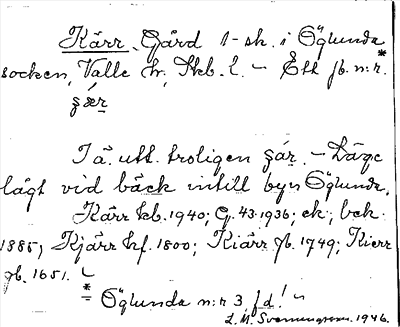 Kärr. Gård 1-sk. i Öglunda
socken, Valle hr, Skb. l. – Ett jb. n:r.*
şær
I ä. utt. troligen şár. – Läge
lågt vid bäck intill byn Öglunda.
Kärr kb. 1940; G. 43. 1936; ek; bek.
1885; Kjärr hf. 1800; Kiärr jb. 1749; Kierr
jb. 1651. –
* = Öglunda n:r 3 fd! –
L. M. Svenungsson. 1946.